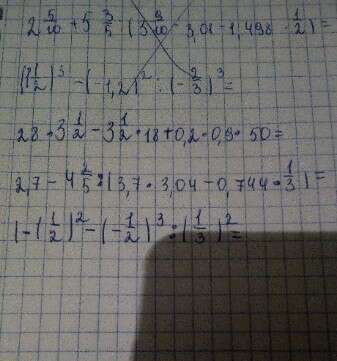 2 5/10 + 5 3/5 · (3 9/10 - 3,01 - 1,498 · 1/2) =
(1 1/2)³ - (-1,2)² : (-2/3)³ =
28 · 3 1/2 - 3 1/2 · 18 + 0,2 · 0,9 · 50 =
2,7 - 4 2/5 : (3,7 · 3,04 - 0,744 · 1/3) =
(-(1/2)² - (-1/2)³ : (1/3)² =